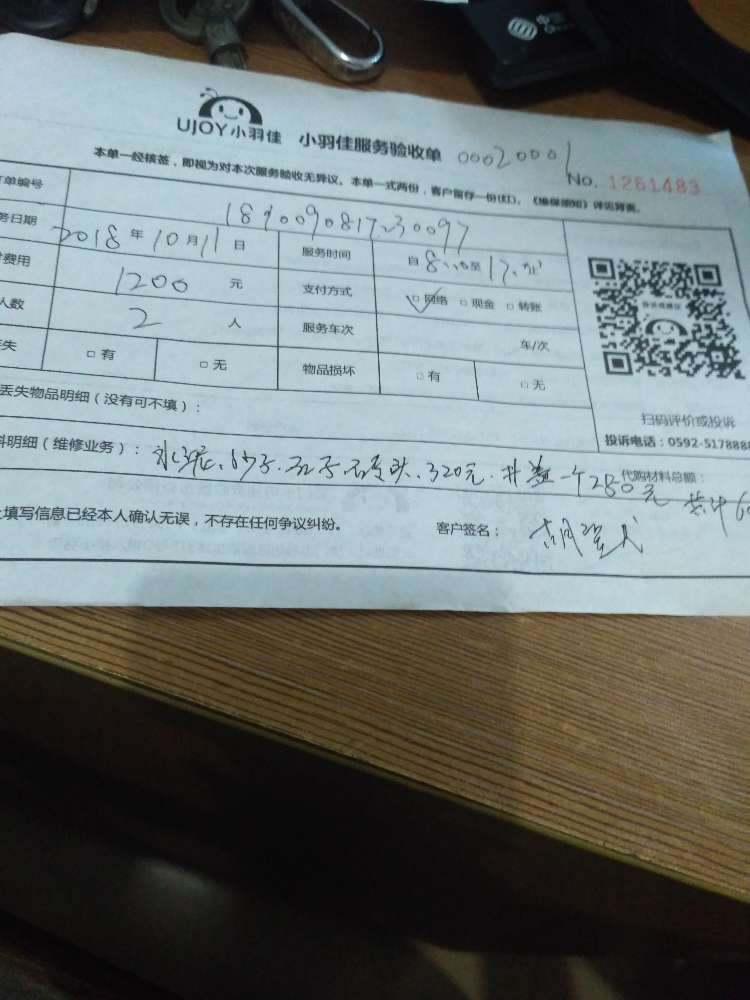 UJOY小羽佳 小羽佳服务验收单 00020001
No. 1261483
本单一经核签，即视为对本次服务验收无异议。本单一式两份，客户留存一份(红)。《维保须知》详见背面。
单编号
务日期 2018 年 10 月 11 日 服务时间 自 8:00 至 17:
费用 1200 元 支付方式 网络 现金 转账
人数 2 人 服务车次 车/次
丢失 有 无 物品损坏 有 无
扫码评价或投诉
投诉电话：0592-5178888
丢失物品明细（没有可不填）：
料明细（维修业务）： 水泥、沙子、石子 320元. 井盖一个280元 共计6
代购材料总额：
填写信息已经本人确认无误，不存在任何争议纠纷。 客户签名：